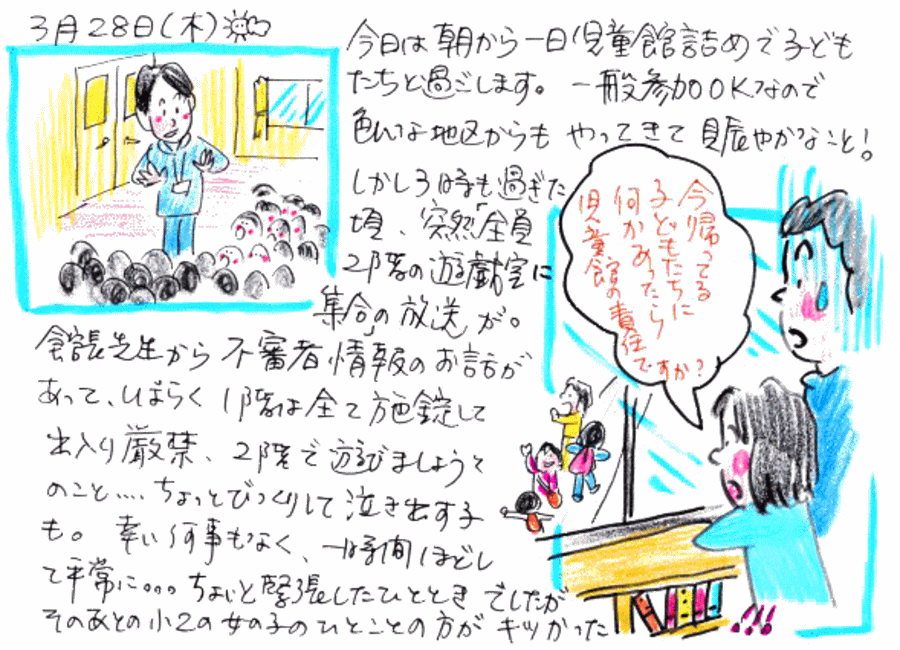 3月28日(木)
今日は朝から一日児童館詰めで子ども
たちと過ごします。一般参加OKなので
色んな地区からもやってきて賑やかなこと!
しかし3時も過ぎた
頃、突然「全員
2階の遊戯室に
集合」の放送が。
館長先生から不審者情報のお話が
あって、しばらく1階は全て施錠して
出入り厳禁、2階で遊びましょうと
のこと....ちょっとびっくりして泣き出す子
も。幸い何事もなく、一時間ほどし
て平常に。。。ちょいと緊張したひとときでしたが
そのあとの小2の女の子のひとことの方がキツかった
今帰ってる
子どもたちに
何かあったら
児童館の責任
ですか?